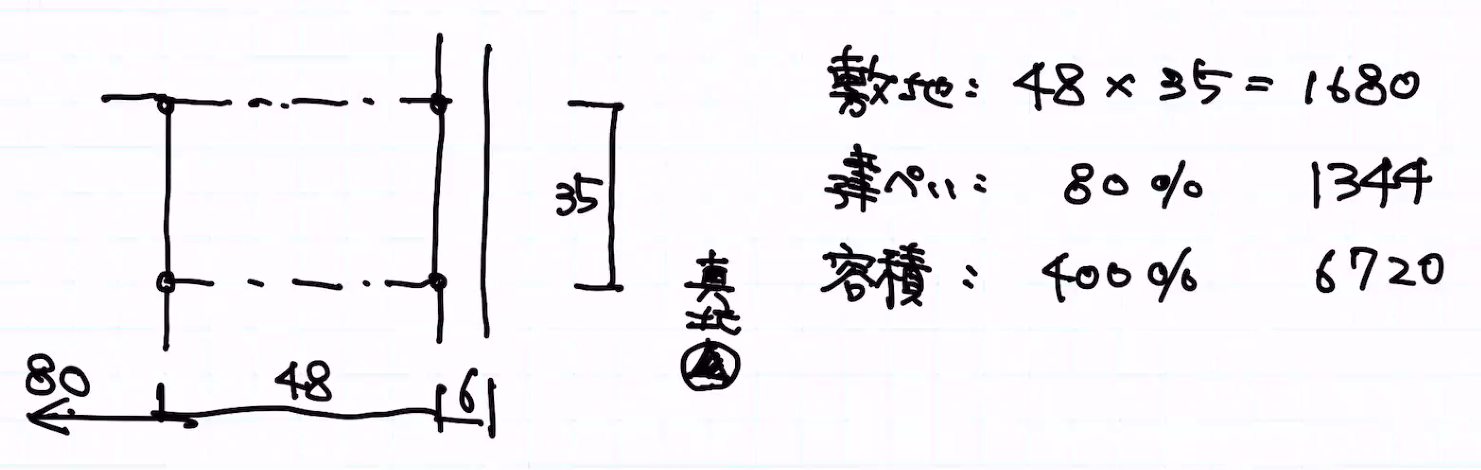 35
80
48
6
真北
敷地: 48 × 35 = 1680
建ぺい: 80% 1344
容積: 400% 6720